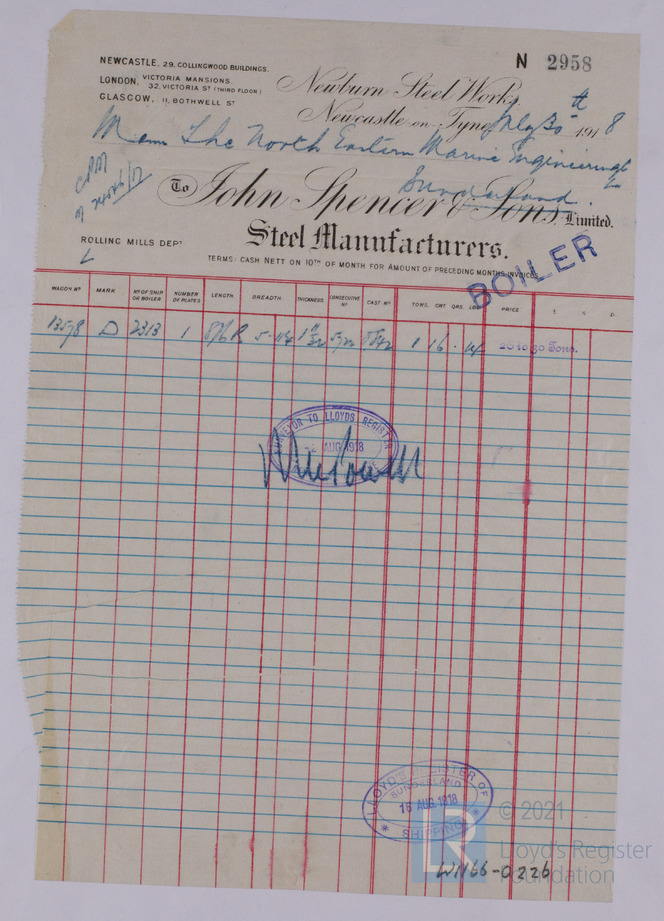 NEWCASTLE, 29, COLLINGWOOD BUILDINGS.
N 2958
LONDON, VICTORIA MANSIONS,
32, VICTORIA ST (THIRD FLOOR)
GLASGOW, 11, BOTHWELL ST
Newburn Steel Works,
Newcastle-on-Tyne, May 30th 1918
The North Eastern Marine Engineering
Sunderland.
To John Spencer & Sons, Limited.
Steel Manufacturers.
ROLLING MILLS DEPT
TERMS: CASH NETT ON 10TH OF MONTH FOR AMOUNT OF PRECEDING MONTHS INVOICES
BOILER
WAGON No MARK No OF SHIP OR BOILER NUMBER OF PLATES LENGTH. BREADTH THICKNESS CONSECUTIVE No CAST No TONS. CWT QRS. LBS PRICE £ S. D.
D 2313 1 1 16 Tons.
SURVEYOR TO LLOYDS REGISTER
AUG 1918
LLOYD'S REGISTER OF
SUNDERLAND
16 AUG 1918
SHIPPING
© 2021
LR
Lloyd's Register
Foundation
W1166-0226